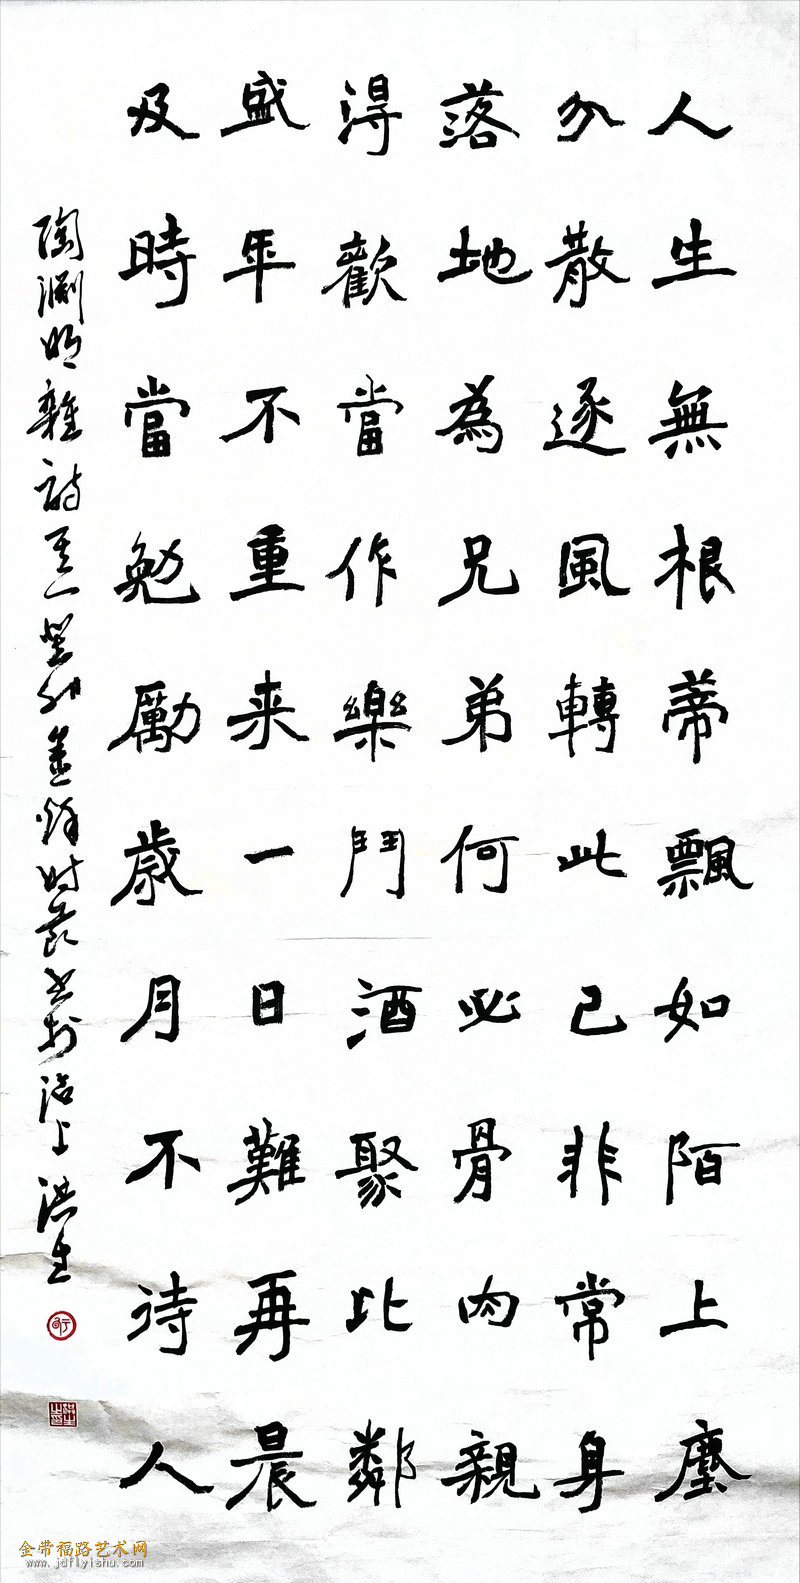 人生無根蒂飄如陌上塵
分散逐風轉此已非常身
落地為兄弟何必骨肉親
得歡當作樂鬥酒聚比鄰
盛年不重来一日難再晨
及時當勉勵歲月不待人
陶淵明雜詩其一癸卯金秋时书於沽上洪生
金带福路艺术网
www.jdflyishu.com